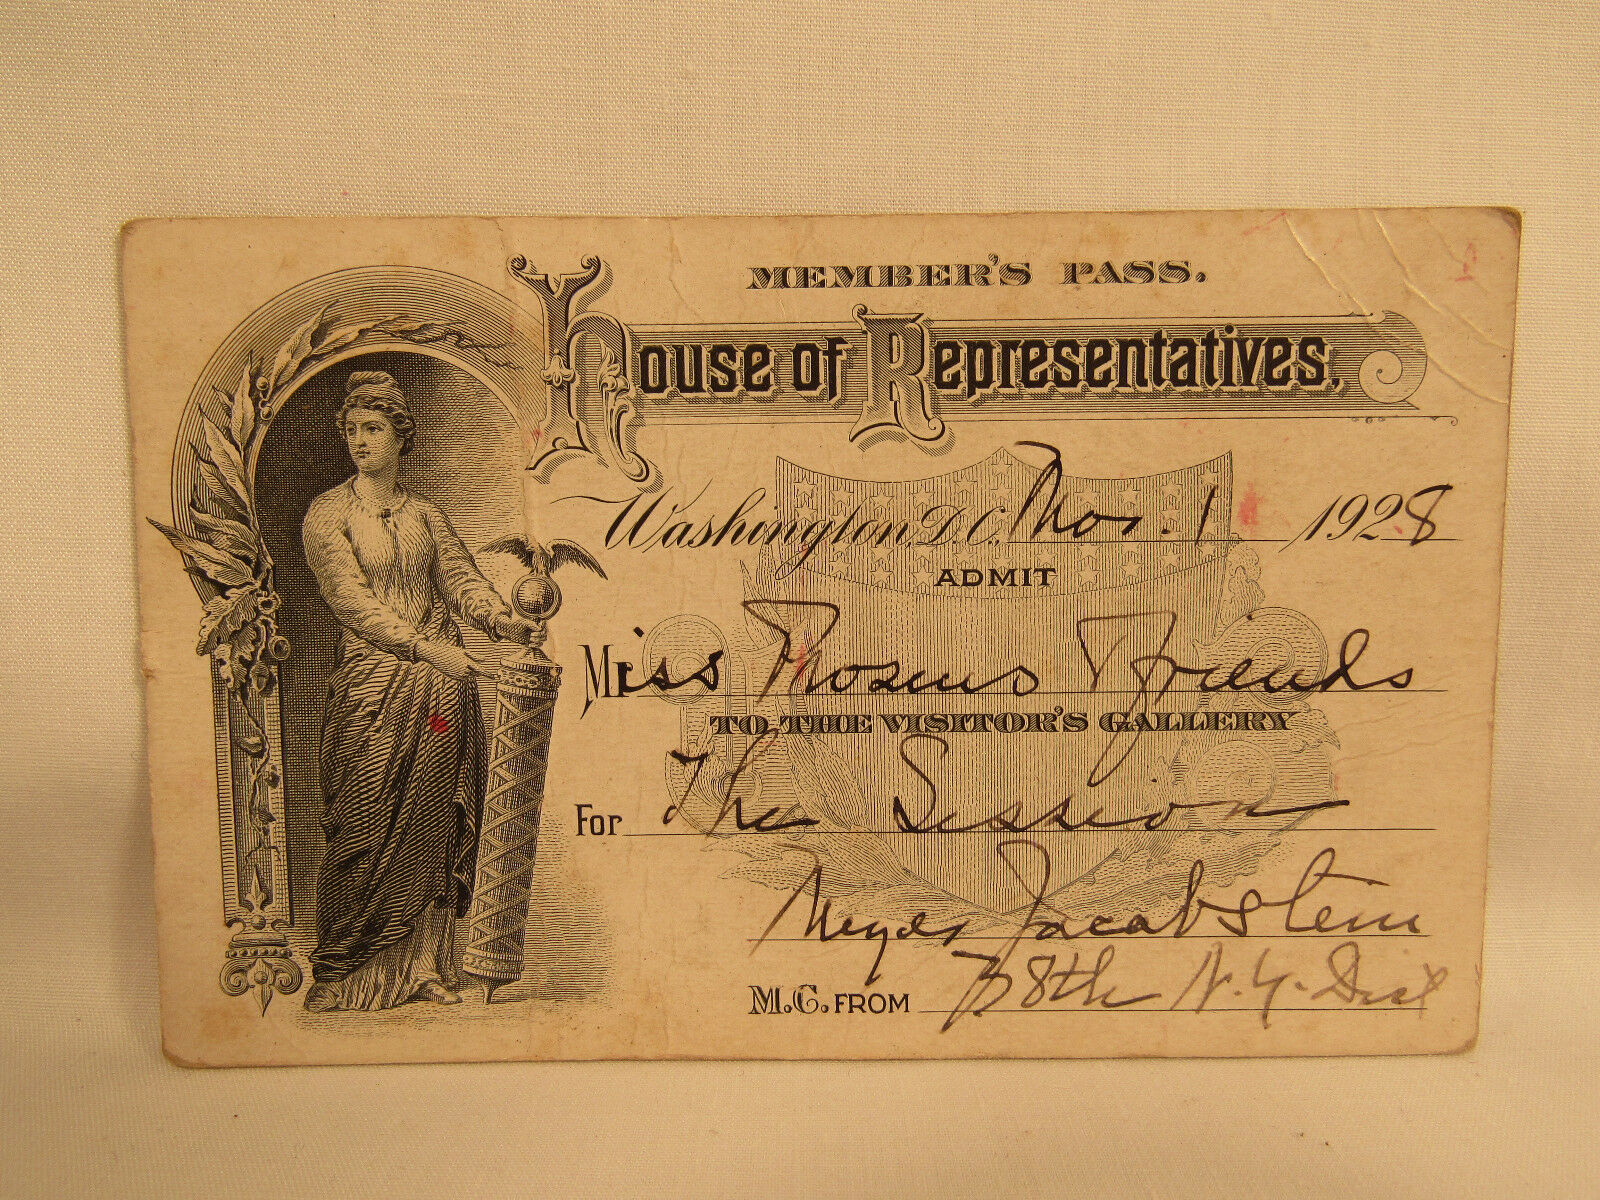 MEMBER'S PASS.
House of Representatives,
Washington, D.C. Mar. 1 1928
ADMIT
Miss Friends
TO THE VISITOR'S GALLERY
For The Session
Meyer Jacobstein
M.C. FROM 38th N.Y. Dist